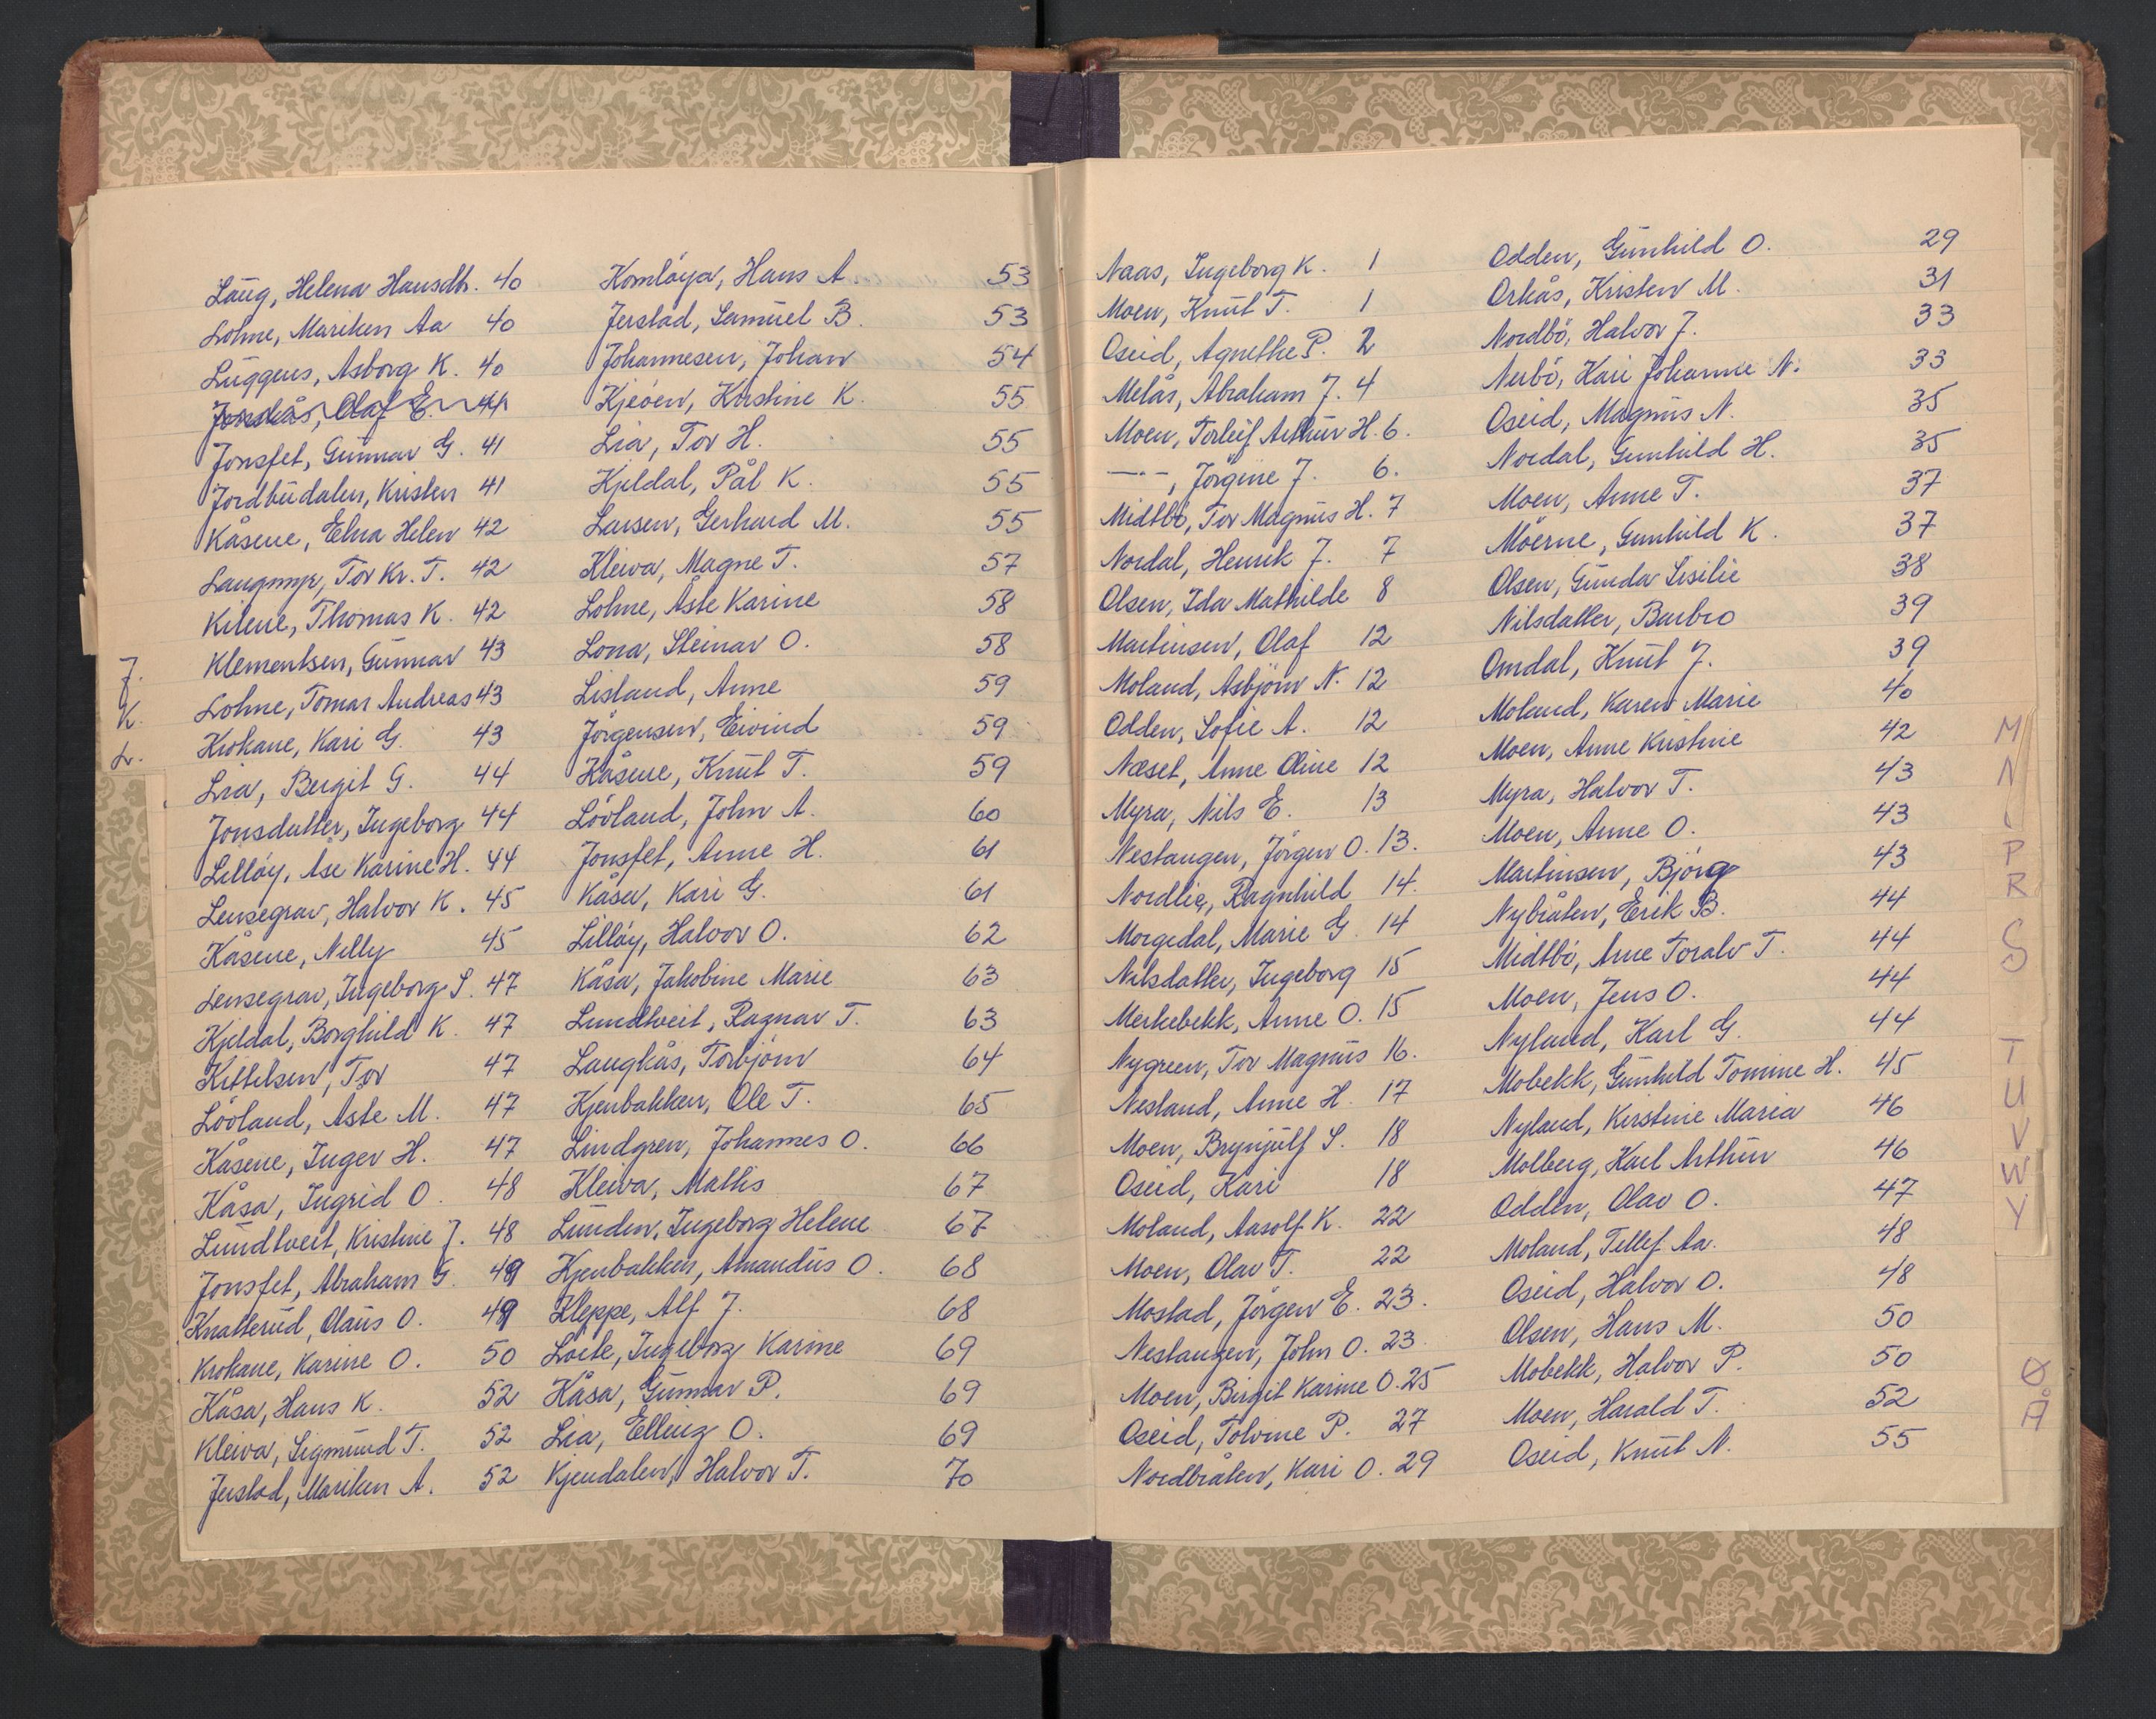 Laug, Helena Hansdtr. 40
Lohne, Mariken Aa 40
Luggens, Asborg K. 40
Jonskås, Olaf E. 41
Jonsfet, Gunnar G. 41
Jordbudalen, Kristen 41
Kåsene, Elna Helen 42
Langmyr, Tor Kr. T. 42
Kilene, Thomas K. 42
Klementsen, Gunnar 43
Lohne, Tomas Andreas 43
Krokane, Kari G. 43
Lia, Bergit G. 44
Jonsdatter, Ingeborg 44
Lilløy, Åse Karine H. 44
Lensegrav, Halvor K. 45
Kåsene, Nelly 45
Lensegrav, Ingeborg S. 47
Kjeldal, Borghild K. 47
Kittelsen, Tor 47
Lövland, Aste M. 47
Kåsene, Inger H. 47
Kåsa, Ingrid O. 48
Lundtveit, Kristine J. 48
Jonsfet, Abraham G. 49
Knatterud, Olaus O. 49
Krokane, Karine O. 50
Kåsa, Hans K. 52
Kleiva, Sigmund T. 52
Jerstad, Mariken A. 52
J.
K.
L.
Komløya, Hans A. 53
Jerstad, Samuel B. 53
Johannesen, Johan 54
Kjeöen, Kirstine K. 55
Lia, Tor H. 55
Kjeldal, Pål K. 55
Larsen, Gerhard M. 55
Kleiva, Magne T. 57
Lohne, Åste Karine 58
Lona, Steinar O. 58
Lisland, Anne 59
Jörgensen, Eivind 59
Kåsene, Knut T. 59
Lövland, John A. 60
Jonsfet, Anne H. 61
Kåsa, Kari G. 61
Lilløy, Halvor O. 62
Kåsa, Jakobine Marie 63
Lundtveit, Ragnar T. 63
Langkås, Torbjörn 64
Kjenbakken, Ole T. 65
Lindgren, Johannes O. 66
Kleiva, Mathis 67
Lunden, Ingeborg Helene 67
Kjenbakken, Amandus O. 68
Kleppe, Alf J. 68
Löite, Ingeborg Karine 69
Kåsa, Gunnar P. 69
Lia, Elling O. 69
Kjendalen, Halvor T. 70
Naas, Ingeborg K. 1
Moen, Knut T. 1
Oseid, Agnethe P. 2
Melås, Abraham J. 4
Moen, Torleif Arthur H. 6.
—"—, Jörgine J. 6.
Midtbö, Tor Magnus H. 7
Nordal, Henrik J. 7
Olsen, Ida Mathilde 8
Martinsen, Olaf 12
Moland, Asbjörn N. 12
Odden, Sofie A. 12
Næset, Anne Oline 12
Myra, Nils E. 13
Neslangen, Jörgen O. 13.
Nordlie, Ragnhild 14.
Morgedal, Marie G. 14
Nilsdatter, Ingeborg 15
Merkebekk, Anne O. 15
Nygreen, Tor Magnus 16.
Nesland, Anne H. 17
Moen, Brynjulf S. 18
Oseid, Kari 18
Moland, Aasolf K. 22
Moen, Olav T. 22
Mostad, Jörgen E. 23.
Neslangen, John O. 23
Moen, Birgit Karine O. 25
Oseid, Tolvine P. 27
Nordbråten, Kari O. 29
Odden, Gunhild O. 29
Orkås, Kristen M. 31
Nordbö, Halvor J. 33
Nerbö, Kari Johanne N. 33
Oseid, Magnus N. 35
Nordal, Gunhild H. 35
Moen, Anne T. 37
Möerne, Gunhild K. 37
Olsen, Gunda Sisilie 38
Nilsdatter, Barbro 39
Omdal, Knut J. 39
Moland, Karen Marie 40
Moen, Anne Kristine 42
Myra, Halvor T. 43
Moen, Anne O. 43
Martinsen, Björg 43
Nybråten, Erik B. 44
Midtbö, Arne Toralv T. 44
Moen, Jens O. 44
Nyland, Karl G. 44
Mobekk, Gunhild Tomine H. 45
Nyland, Kirstine Maria 46
Molberg, Karl Arthur 46
Odden, Olav O. 47
Moland, Tellef Aa. 48
Oseid, Halvor O. 48
Olsen, Hans M. 50
Mobekk, Halvor P. 50
Moen, Harald T. 52
Oseid, Knut N. 55
M
N
P
R
S
T
U
V
W
Y
Ø
Å